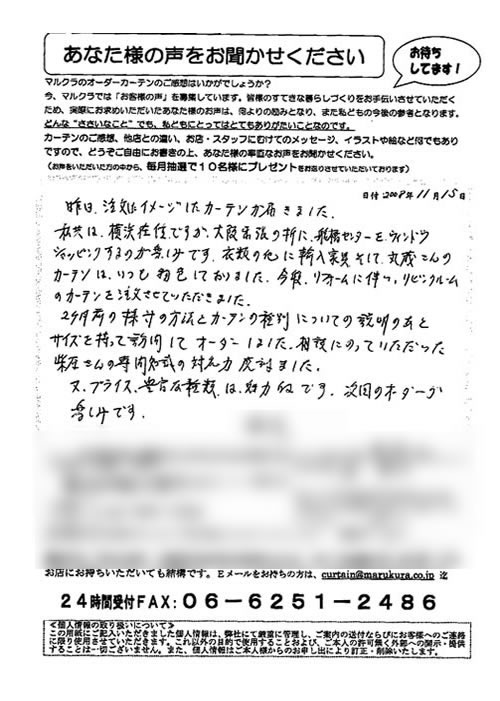 あなた様の声をお聞かせください
お待ち
してます!
マルクラのオーダーカーテンのご感想はいかがでしょうか?
今、マルクラでは「お客様の声」を募集しています。皆様のすてきな暮らしづくりをお手伝いさせていただく
ため、実際にお求めいただいたあなた様のお声は、何よりの励みとなり、また私どもの今後の参考となります。
どんな"ささいなこと"でも、私どもにとってはとてもありがたいことなのです。
カーテンのご感想、他店との違い、お店・スタッフにむけてのメッセージ、イラストや絵など何でもあり
ですので、どうぞご自由にお書きの上、あなた様の率直なお声をお聞かせください。
(お声をいただいた方の中から、毎月抽選で10名様にプレゼントをお送りさせていただいております)
日付2008年11月15日
昨日、注文したイメージしたカーテンが届きました。
は、横浜在住ですが、大阪出張の折に、船橋センターをウィンドウ
ショッピングするのが楽しみです。衣類の他に輸入家具そして丸蔵さんの
カーテンは、いつも物色しておりました。今般、リフォームに伴い、リビングルーム
のカーテンを注文させていただきました。
2ケ月前の採寸の方法とカーテンの種別についての説明のあと
サイズを持って訪問してオーダーしました。相談にのっていただいた
柴尾さんの専門知識の対応力感謝しました。
又、プライス、豊富な種類は、魅力的です。次回のオーダーが
楽しみです。
お店にお持ちいただいても結構です。Eメールをお持ちの方は、curtain@marukura.co.jp 迄
24時間受付FAX:06-6251-2486
<個人情報の取り扱いについて>
この用紙にご記入いただきました個人情報は、弊社にて厳重に管理し、ご案内の送付ならびにお客様へのご連絡
に限り使用させていただきます。これ以外の目的で使用することおよび、ご本人の許可無く外部への開示・提供
することは一切ございません。また、個人情報はご本人様からのお申し出により訂正・削除いたします。